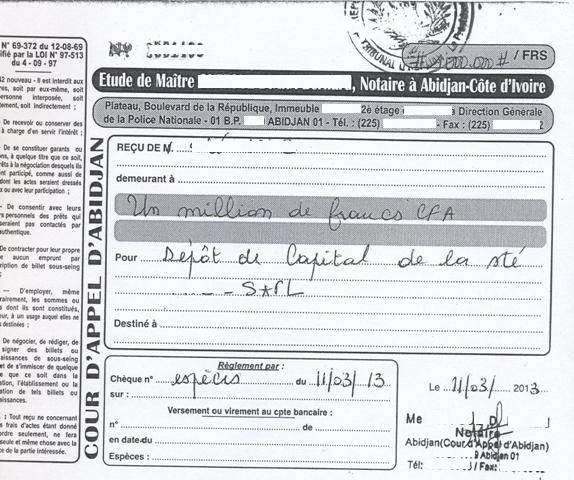 N° 69-372 du 12-08-69
ifié par la LOI N° 97-513
du 4 -09 - 97
42 nouveau - Il est interdit aux
ires, soit par eux-même, soit
personne interposée, soit
tement, soit indirectement ;
De recevoir ou conserver des
à charge d'en servir l'intérêt ;
De se constituer garants ou
ons, à quelque titre que ce soit,
rêts à la négociation desquels ils
nt participé, comme aussi de
dont les actes seraient dressés
x ou avec leur participation ;
De consentir avec leurs
rs personnels des prêts qui
seraient pas contactés par
uthentique.
De contracter pour leur propre
e aucun emprunt par
ription de billet sous-seing
D'employer, même
rairement, les sommes ou
dont ils sont constitués,
ur, à un usage auquel elles ne
s destinées ;
De négocier, de rédiger, de
signer des billets ou
aissances de sous-seing
et de s'immiscer de quelque
e que ce soit dans la
ation, l'établissement ou la
ation de tels billets ou
aissances.
: Tout reçu ne concernant
s frais d'actes étant donné
ordre seulement, ne fera
seule et même chose avec la
ce de la partie intéressée.
COUR D'APPEL D'ABIDJAN
N°
TRIBUNAL
/ FRS
Etude de Maître , Notaire à Abidjan-Côte d'Ivoire
Plateau, Boulevard de la République, Immeuble 2è étage Direction Générale
de la Police Nationale - 01 B.P. ABIDJAN 01 - Tél. : (225) - Fax : (225)
REÇU DE
demeurant à
Un million de francs CFA
Pour Dépôt de Capital de la sté
SARL
Destiné à
Règlement par :
Chèque n° espèces du 11/03/13
sur :
Versement ou virement au cpte bancaire :
n° de
en date du
Espèces :
Le 11/03/ 2013
Me
Notaire
Abidjan(Cour d'Appel d'Abidjan)
Abidjan 01
Tél: / Fax: